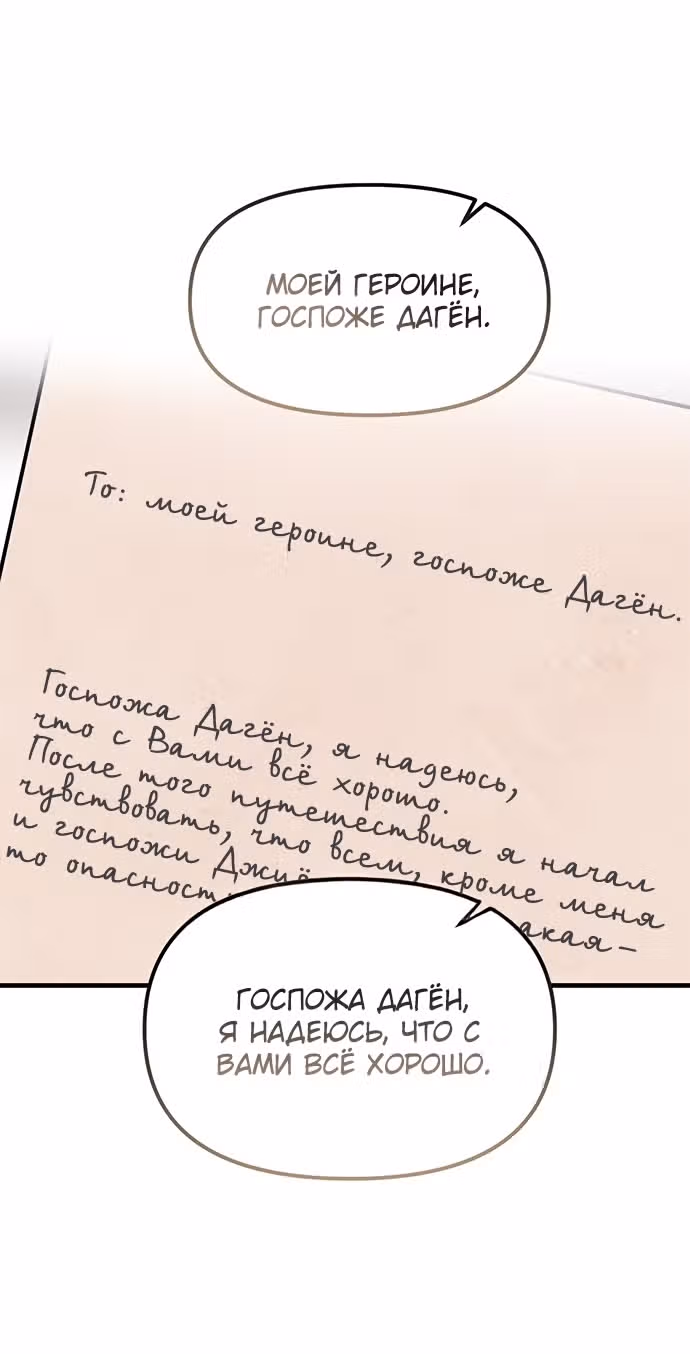 МОЕЙ ГЕРОИНЕ,
ГОСПОЖЕ ДАГЁН.
То: моей героине, госпоже Дагён.
Госпожа Дагён, я надеюсь,
что с Вами всё хорошо.
После того путешествия я начал
чувствовать, что всем, кроме меня
и госпожи
то
ГОСПОЖА ДАГЁН,
Я НАДЕЮСЬ, ЧТО С
ВАМИ ВСЁ ХОРОШО.